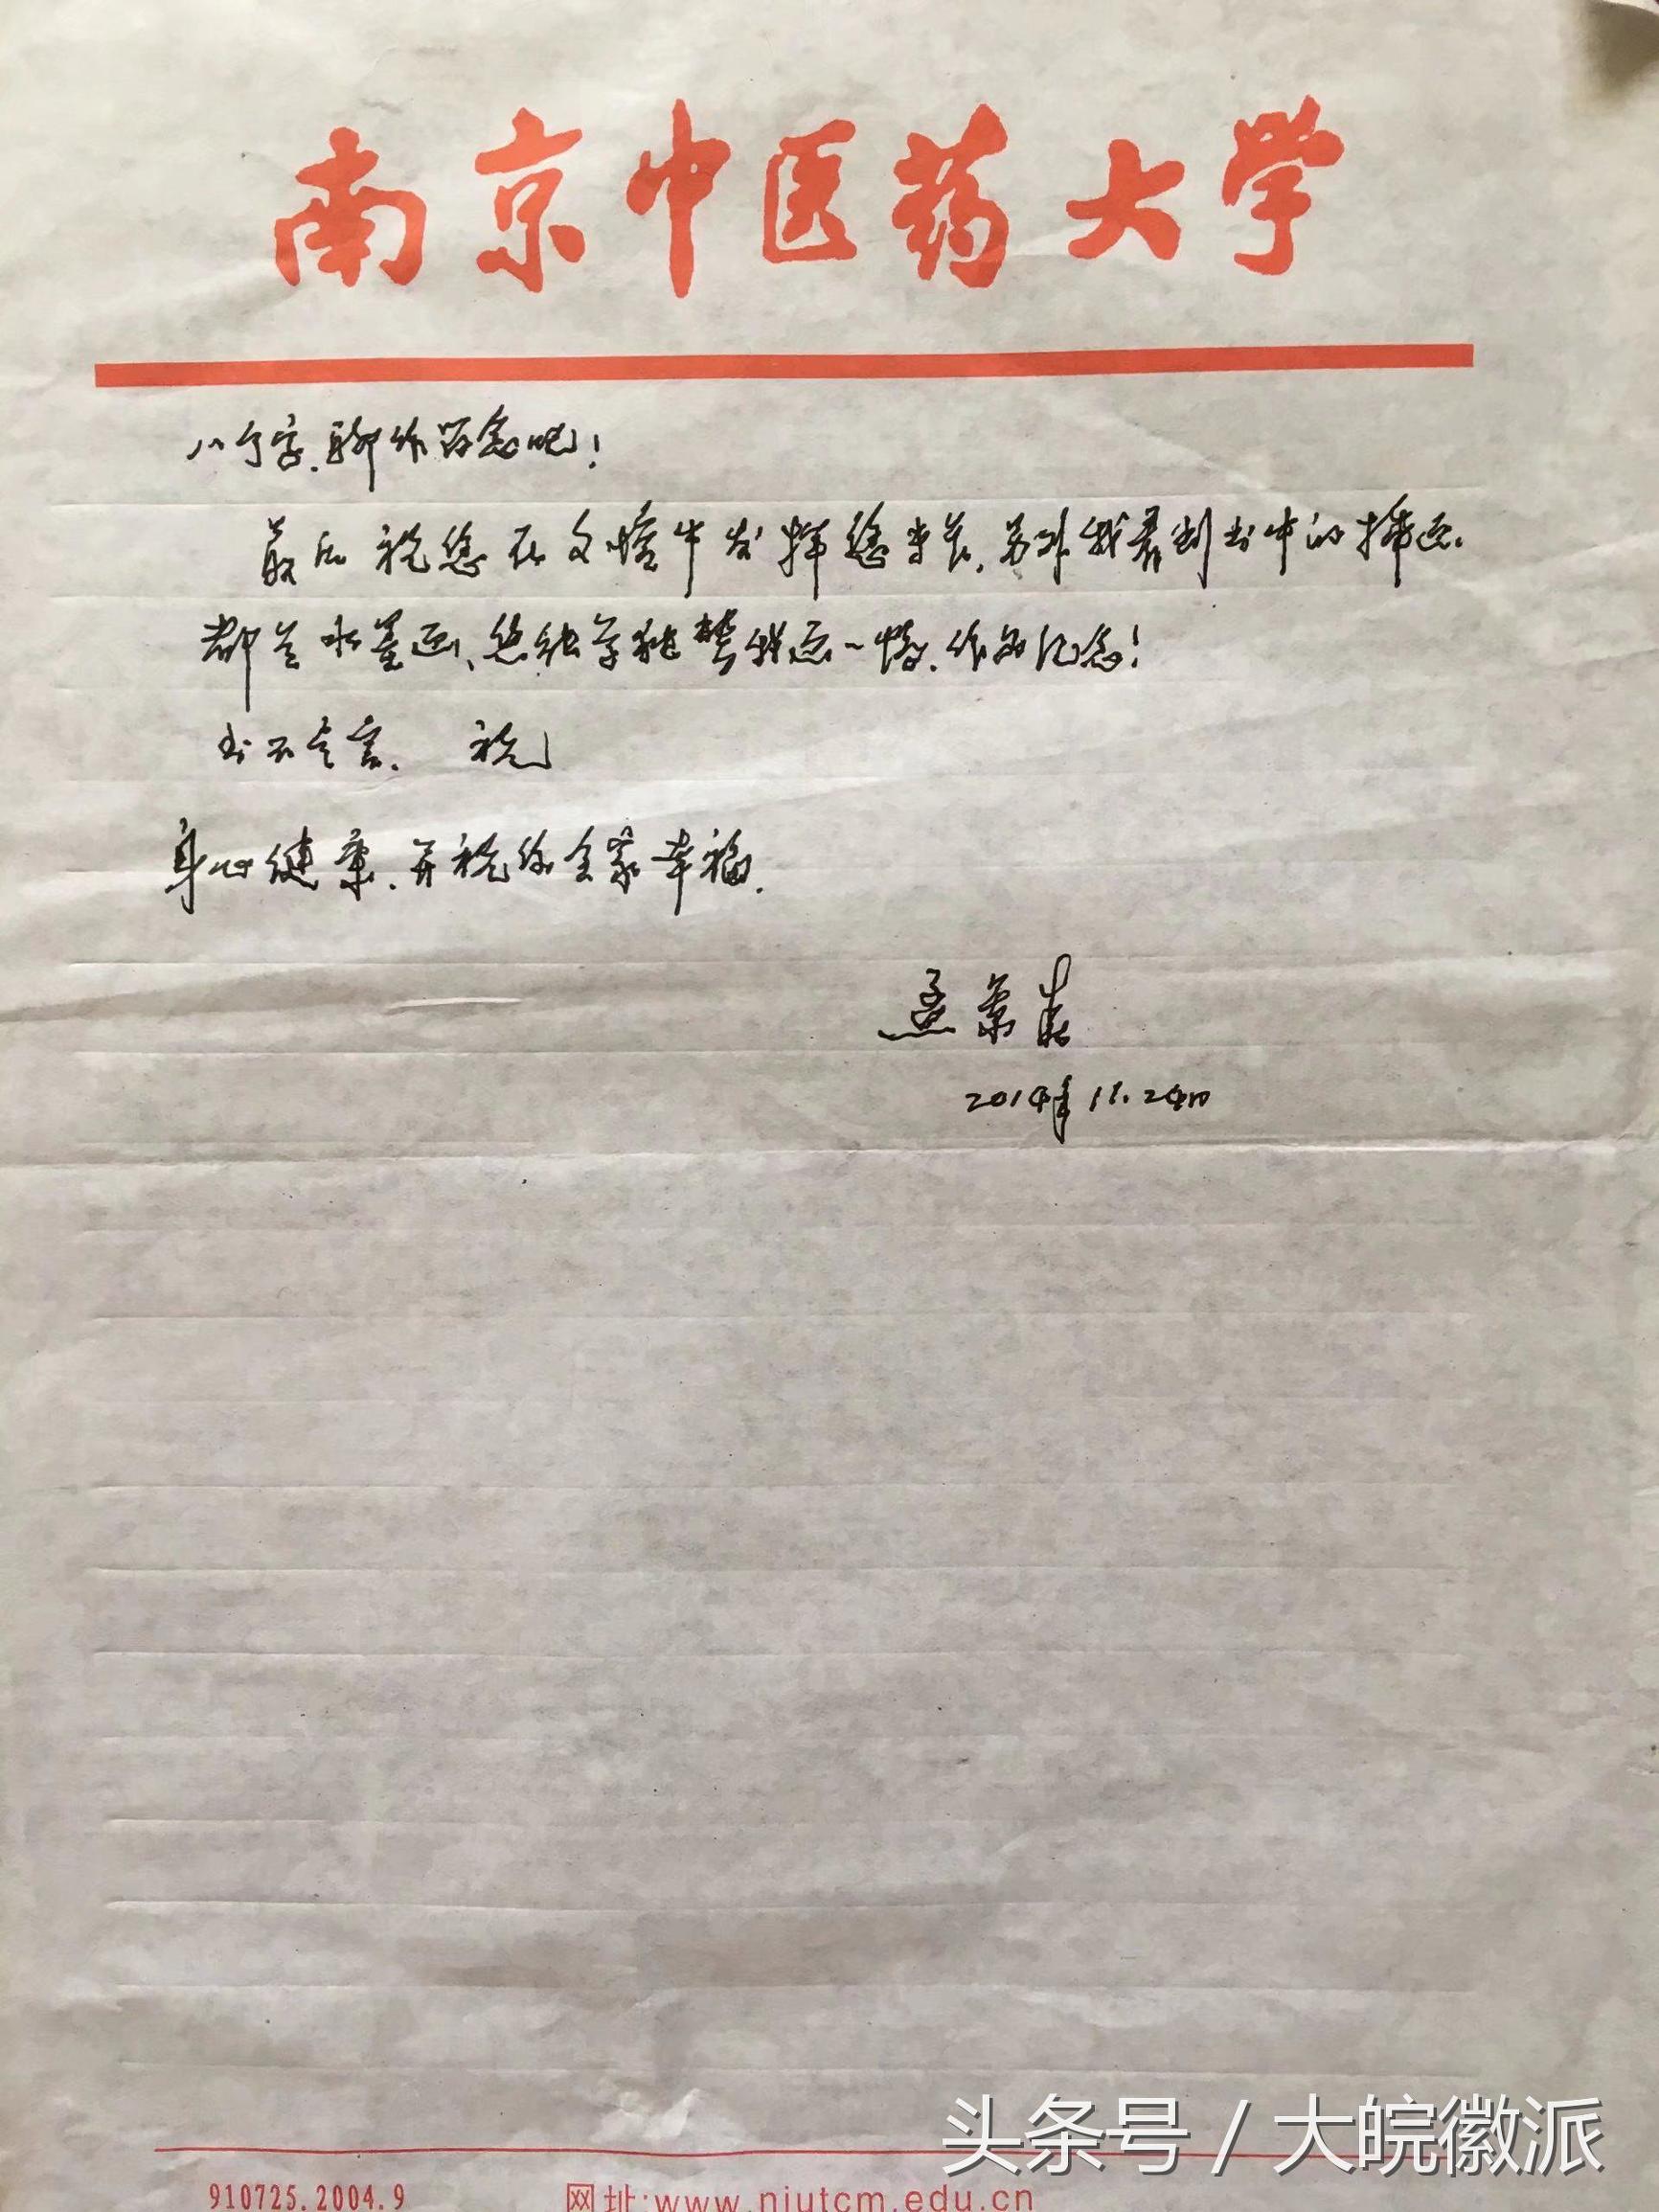 南京中医药大学
八个字，聊作留念吧！
最后祝您在文坛中发挥您专长，另外我看到书中的插画，
都是水墨画、您能否抽空我画一幅，作为纪念！
书不尽言。 祝
身心健康，并祝你全家幸福。
孟景春
2014年11.24日
头条号 / 大皖徽派
910725.2004.9 网址:www.njutcm.edu.cn